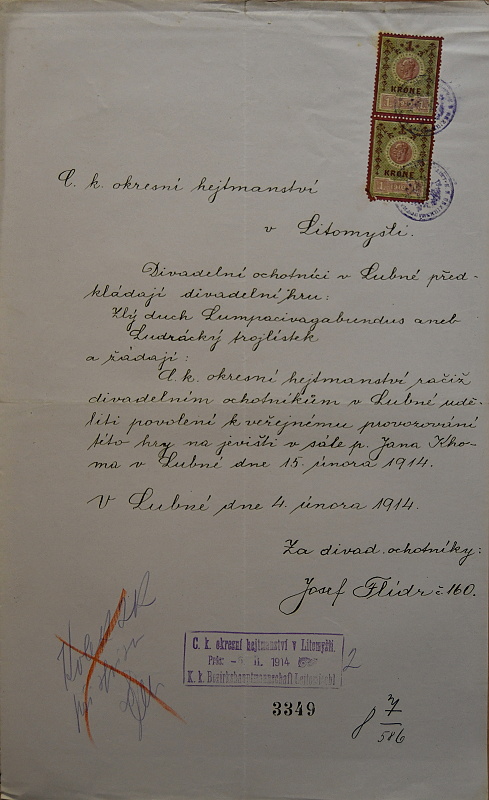 1
KRONE
1
KRONE
C. k. okresní hejtmanství
v Litomyšli.
Divadelní ochotníci v Lubné před-
kládají divadelní hru:
Zlý duch Lumpacivagabundus aneb
Ludrácký trojlístek
a žádají:
C. k. okresní hejtmanství račiž
divadelním ochotníkům v Lubné udě-
liti povolení k veřejnému provozování
této hry na jevišti v sále p. Jana Kho-
ma v Lubné dne 15. února 1914.
V Lubné dne 4. února 1914.
Za divad. ochotníky:
Josef Flídr č. 160.
C. k. okresní hejtmanství v Litomyšli.
Präs: II. 1914
K. k. Bezirkshauptmannschaft Leitomischl
2
3349
586